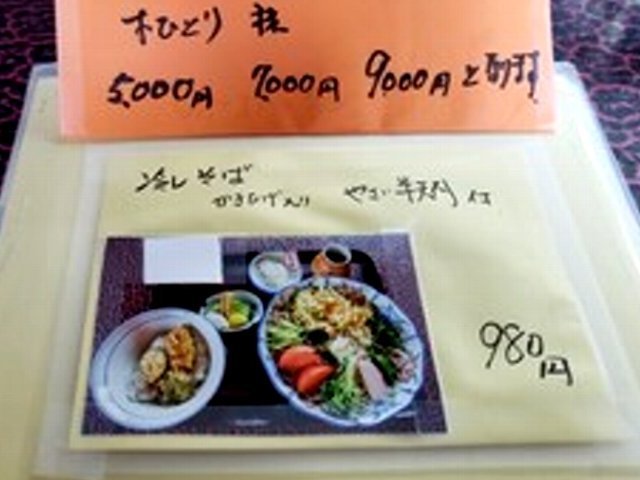 お一ひとり 様
5,000円 7,000円 9,000円と即す
冷しそば
かきあげ入り やさい半天丼 付
980円